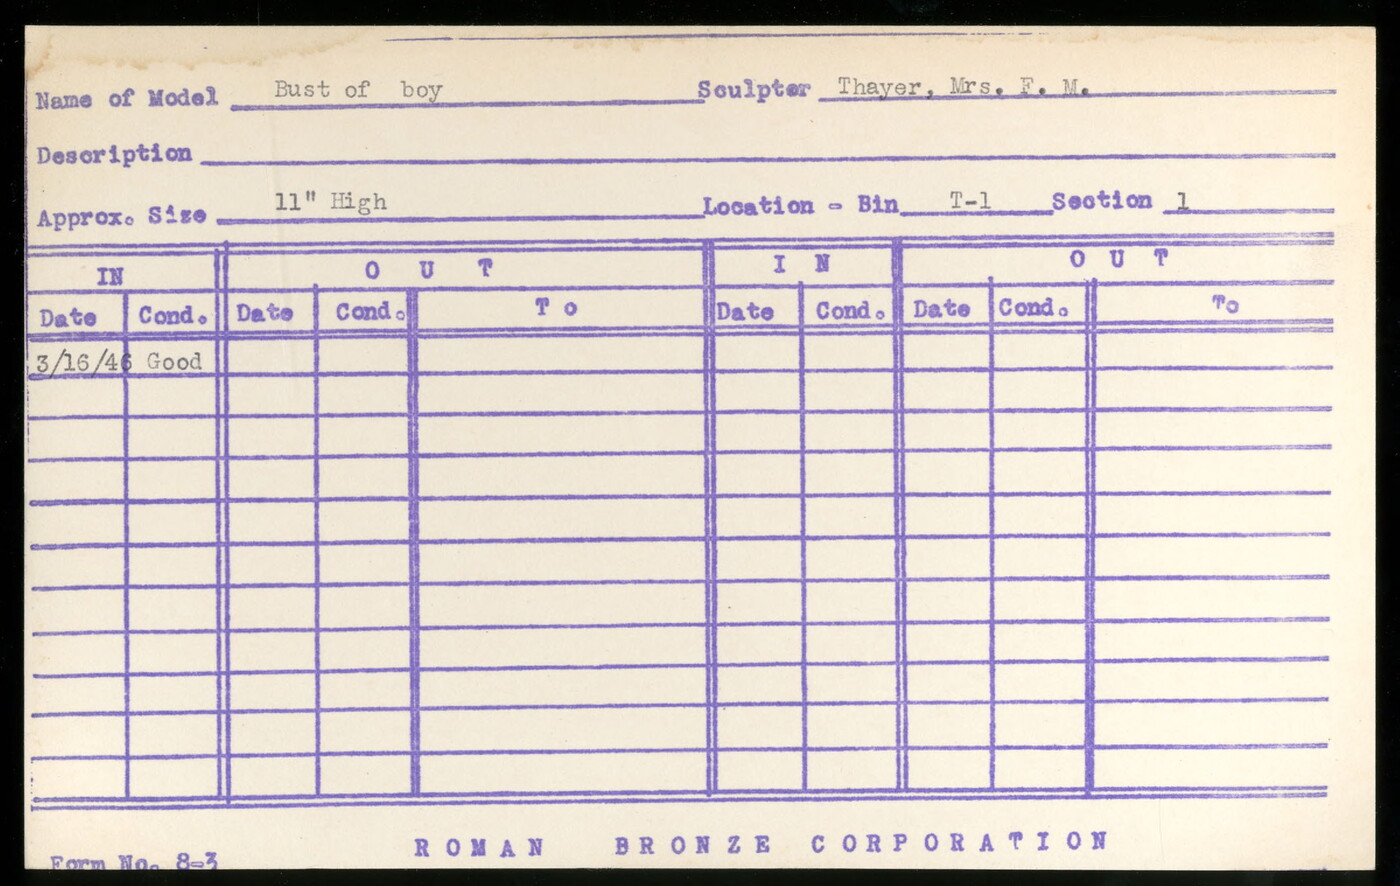 Name of Model Bust of boy Sculptor Thayer, Mrs. F. M.
Description
Approx. Size 11" High Location - Bin T-1 Section 1
IN OUT IN OUT
Date Cond. Date Cond. To Date Cond. Date Cond. To
3/16/46 Good
ROMAN BRONZE CORPORATION
Form No. 8-3